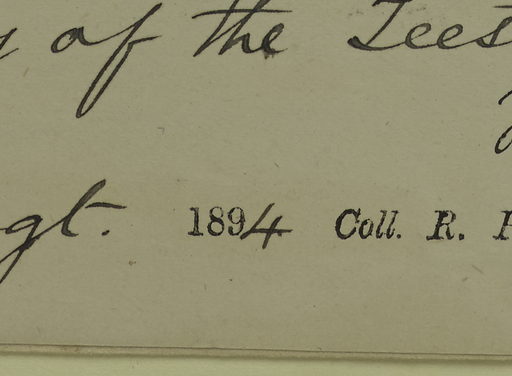 of the Tees
gt. 1894 Coll. R.